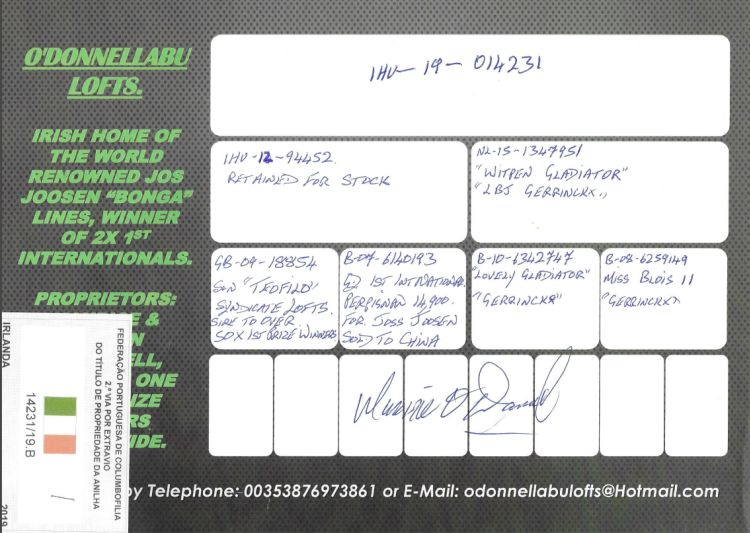 O'DONNELLABU
LOFTS.
IRISH HOME OF
THE WORLD
RENOWNED JOS
JOOSEN “BONGA”
LINES, WINNER
OF 2X 1ST
INTERNATIONALS.
PROPRIETORS:
E &
N
ELL,
ONE
IZE
RS
IDE.
IHU-19-014231
IHU-12-94452.
RETAINED FOR STOCK
NL-15-1347951
"WITPEN GLADIATOR"
"LBJ GERRINCKX.,
GB-09-18854
SON "TEOFILO"
SYNDICATE LOFTS.
SIRE TO OVER
50X 1ST PRIZE WINNERS
B-07-6140193
1ST INTNATIONAL
PERPIGNAN 14,900.
FOR JOSS JOOSEN
SOLD TO CHINA
B-10-6342747
"LOVELY GLADIATOR"
"GERRINCKX"
B-08-6259149
MISS BLOIS 11
"GERRINCKX"
by Telephone: 00353876973861 or E-Mail: odonnellabulofts@Hotmail.com
FEDERAÇÃO PORTUGUESA DE COLUMBOFILIA
2.ª VIA POR EXTRAVIO
DO TÍTULO DE PROPRIEDADE DA ANILHA
14231/19.B
IRLANDA
2019